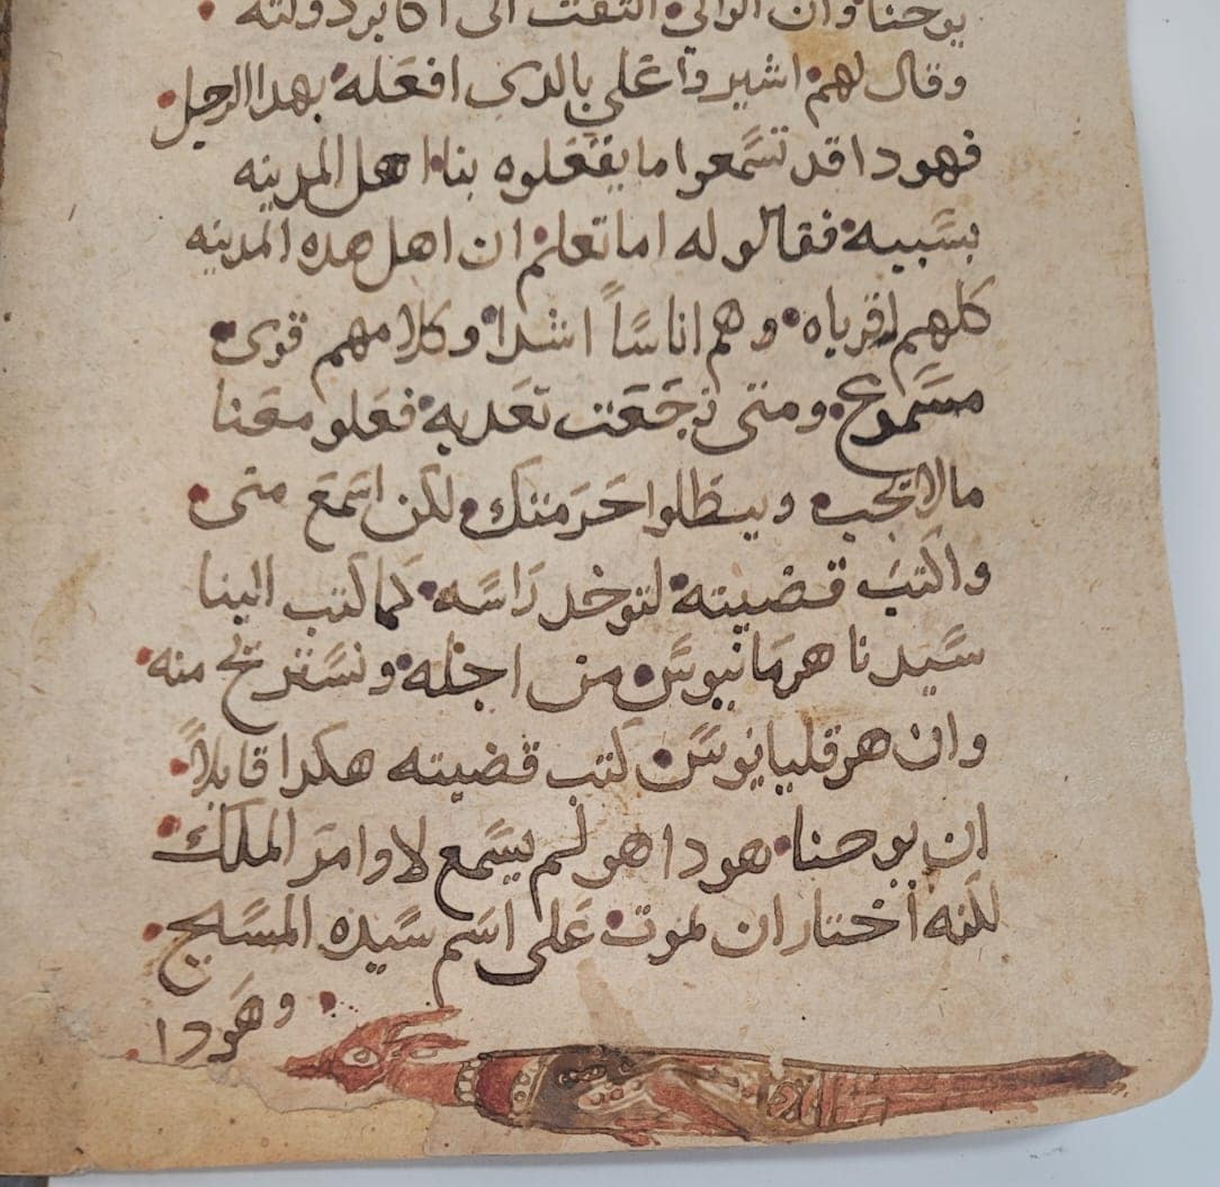 يوحنا وان الوالي التفت الى اكابر دولته
وقال لهم اشيروا على بالدي افعله بهدا الرجل
فهودا قد تسمعوا ما يفعلوه بنا اهل المدينه
بسببه فقالو له اما تعلم ان اهل هده المدينه
كلهم اقرباه وهم اناسا اشدا وكلامهم قوى
مسموع ومتى رجعت تعديه فعلو معنا
مالا يجب ويبطلوا حرمتك لكن اسمع متى
واكتب قضيته لتوخد راسه كما كتب الينا
سيدنا هرمانيوس من اجله ونستريح منه
وان هرقليانوس كتب قضيته هكدا قايلا
ان يوحنا هودا هو لم يسمع لاوامر الملك
لكنه أختار ان يموت على اسم سيده المسيح
وهودا